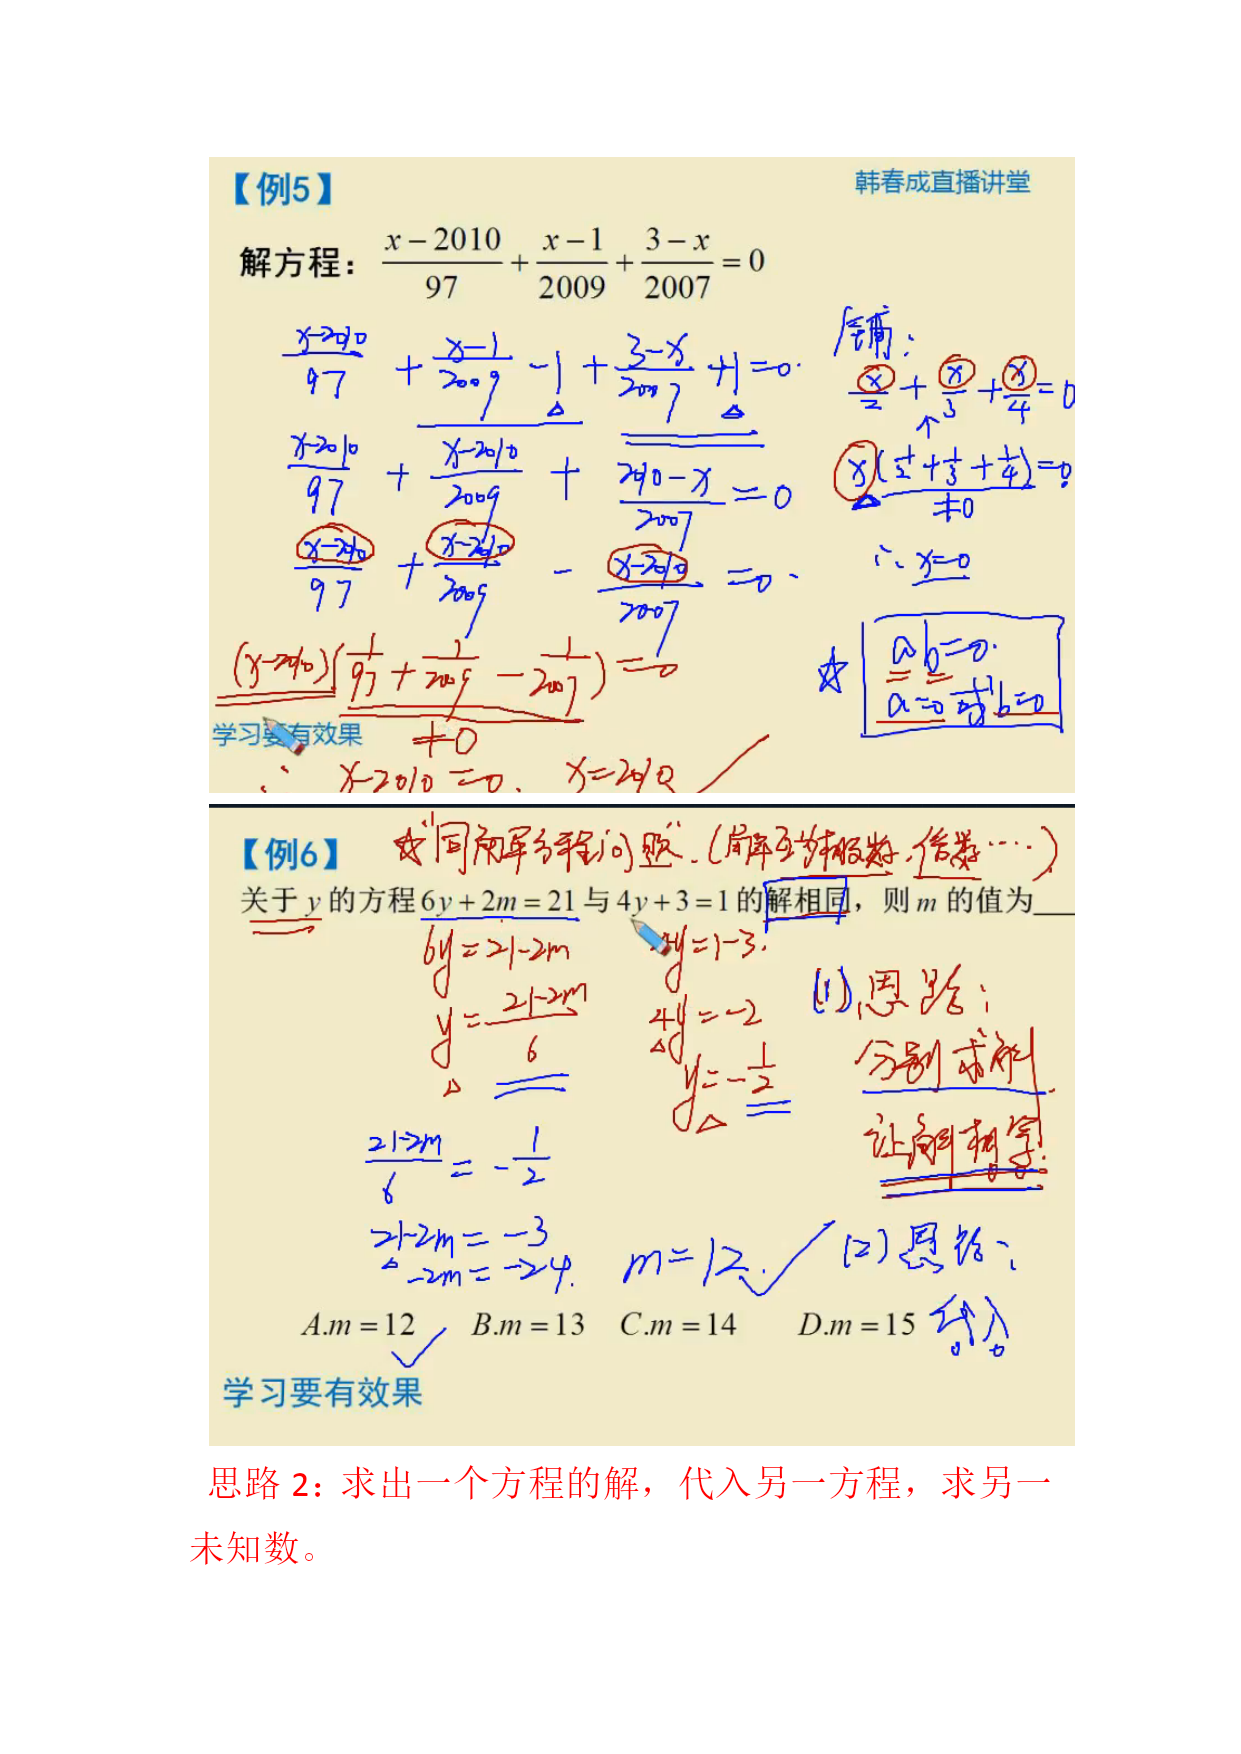 【例5】 韩春成直播讲堂
解方程： (x－2010)/97 + (x－1)/2009 + (3－x)/2007 = 0
(x-2010)/97 + (x-1)/2009 -1 + (3-x)/2007 +1 =0.
铺：
x/2 + x/3 + x/4 = 0
(x-2010)/97 + (x-2010)/2009 + (2010-x)/2007 = 0
x(1/2+1/3+1/4)=0.
≠0
(x-2010)/97 + (x-2010)/2009 - (x-2010)/2007 =0.
∴ x=0
(x-2010)(1/97 + 1/2009 - 1/2007)=0
☆ ab=0.
a=0 或 b=0
学习要有效果
≠0
∴ x-2010=0. x=2010 ✓
【例6】 ☆“同解方程问题”.(解互为相反数.倍数……)
关于 y 的方程 6y + 2m = 21 与 4y + 3 = 1 的解相同，则 m 的值为___
6y=21-2m 4y=1-3.
(1) 思路：
y=(21-2m)/6 4y=-2
分别求解
y=-1/2
让解相等!
(21-2m)/6 = -1/2
21-2m=-3
-2m=-24. m=12. ✓
(2) 思路：
代入
A.m = 12 ✓ B.m = 13 C.m = 14 D.m = 15
学习要有效果
思路 2：求出一个方程的解，代入另一方程，求另一
未知数。